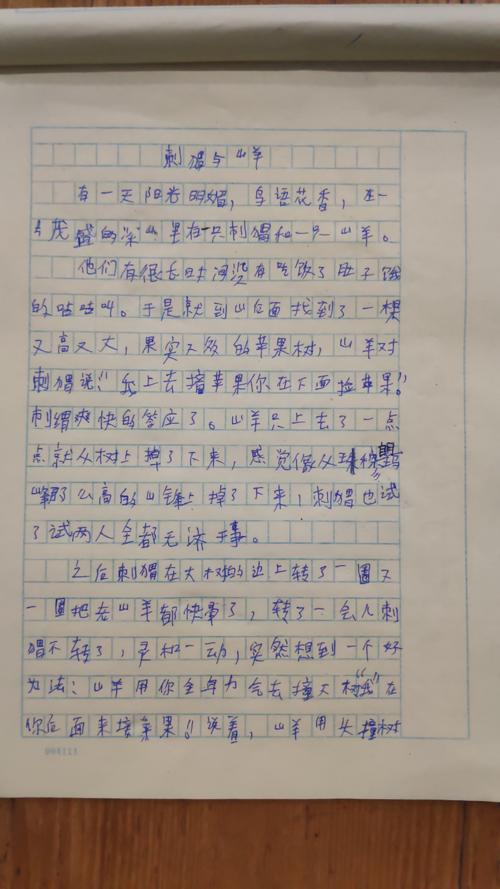 刺猬与山羊
有一天阳光明媚，鸟语花香，在一
个茂盛的深山里有一只刺猬和一只山羊。
他们有很长时间没有吃饭了肚子饿
的咕咕叫。于是就到山后面找到了一棵
又高又大，果实又多的苹果树，山羊对
刺猬说："我上去摘苹果你在下面捡苹果。"
刺猬爽快的答应了。山羊只上去了一点
点就从树上掉了下来，感觉像从珠穆朗玛
峰那么高的山锋上掉了下来，刺猬也试
了试两人全都无济于事。
之后刺猬在大树的边上转了一圈又
一圈把老山羊都快晕了，转了一会儿刺
猬不转了，灵机一动，突然想到一个好
办法：山羊用你全身力气去撞大树"我在
你后面来接苹果。"说着，山羊用头撞树
004111